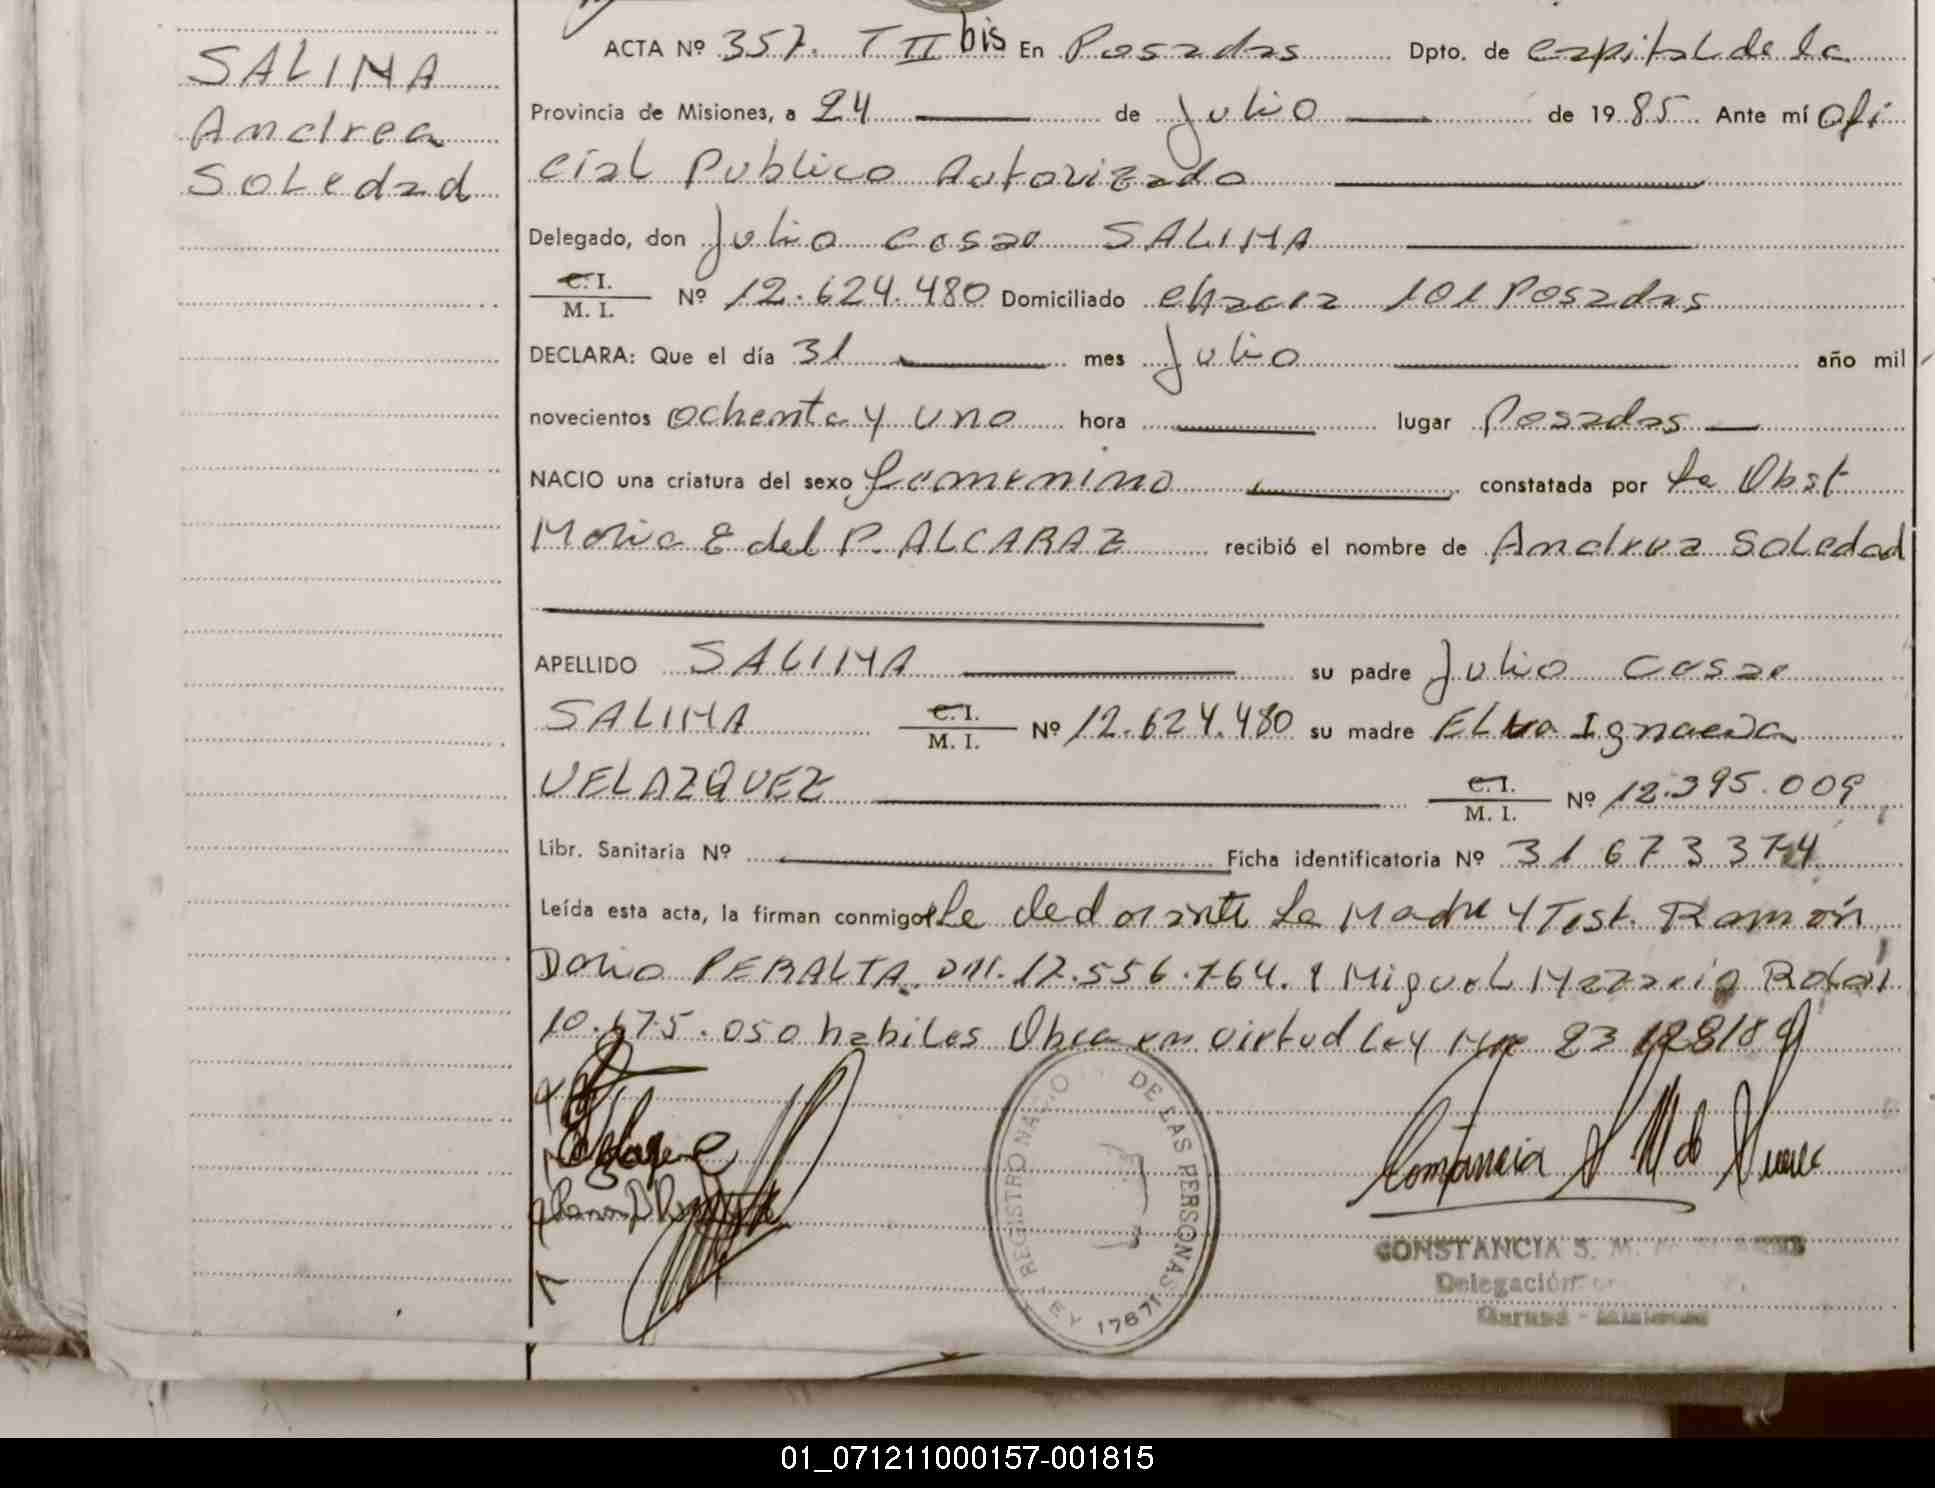 SALINA
Andrea
Soledad
ACTA Nº 357. T II bis En Posadas Dpto. de Capital de la
Provincia de Misiones, a 24 de Julio de 1985 Ante mí Ofi
cial Publico Autorizado
Delegado, don Julio Cesar SALINA
C. I. / M. I. Nº 12.624.480 Domiciliado chacra 101 Posadas
DECLARA: Que el día 31 mes Julio año mil
novecientos ochenta y uno hora lugar Posadas
NACIO una criatura del sexo femenino constatada por la Obst
Maria E del P. ALCARAZ recibió el nombre de Andrea Soledad
APELLIDO SALINA su padre Julio Cesar
SALINA C. I. / M. I. Nº 12.624.480 su madre Elva Ignacia
VELAZQUEZ C. I. / M. I. Nº 12.395.009
Libr. Sanitaria Nº Ficha identificatoria Nº 31 673 374
Leída esta acta, la firman conmigo el declarante la Madre y Test. Ramón
Dario PERALTA 12.556.764. Miguel
050 habiles Obra en virtud Ley Nro 23
REGISTRO NAC DE LAS PERSONAS
LEY 17671
CONSTANCIA S. M.
Delegación
01_071211000157-001815